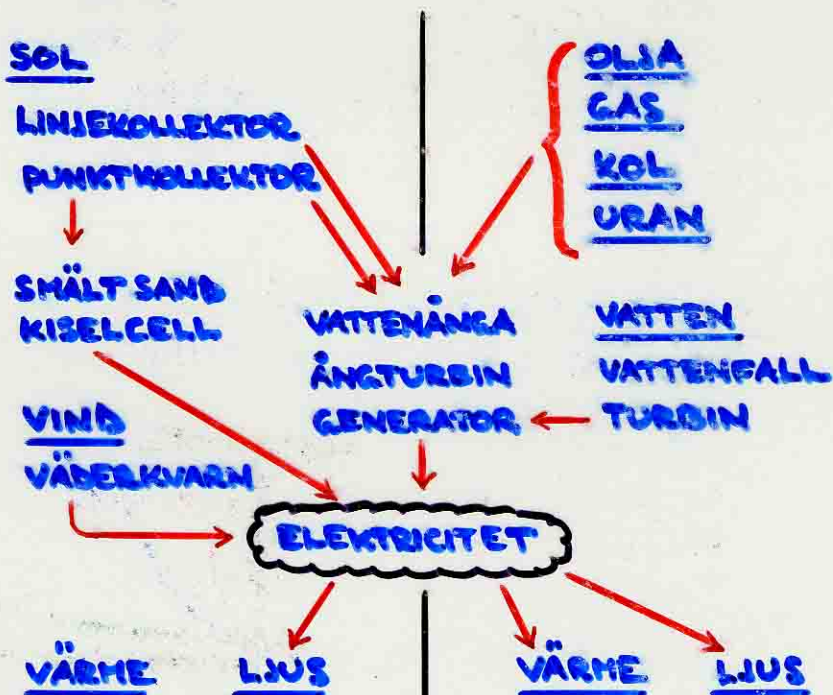 SOL
LINJEKOLLEKTOR
PUNKTKOLLEKTOR
SMÄLT SAND
KISELCELL
VIND
VÄDERKVARN
OLJA
GAS
KOL
URAN
VATTENÅNGA
ÅNGTURBIN
GENERATOR
VATTEN
VATTENFALL
TURBIN
ELEKTRICITET
VÄRME LJUS
VÄRME LJUS